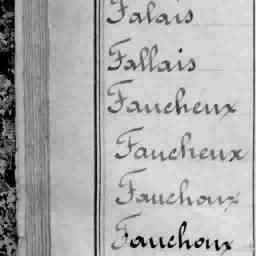 Falais
Fallais
Faucheux
Faucheux
Fauchoux
Fauchoux